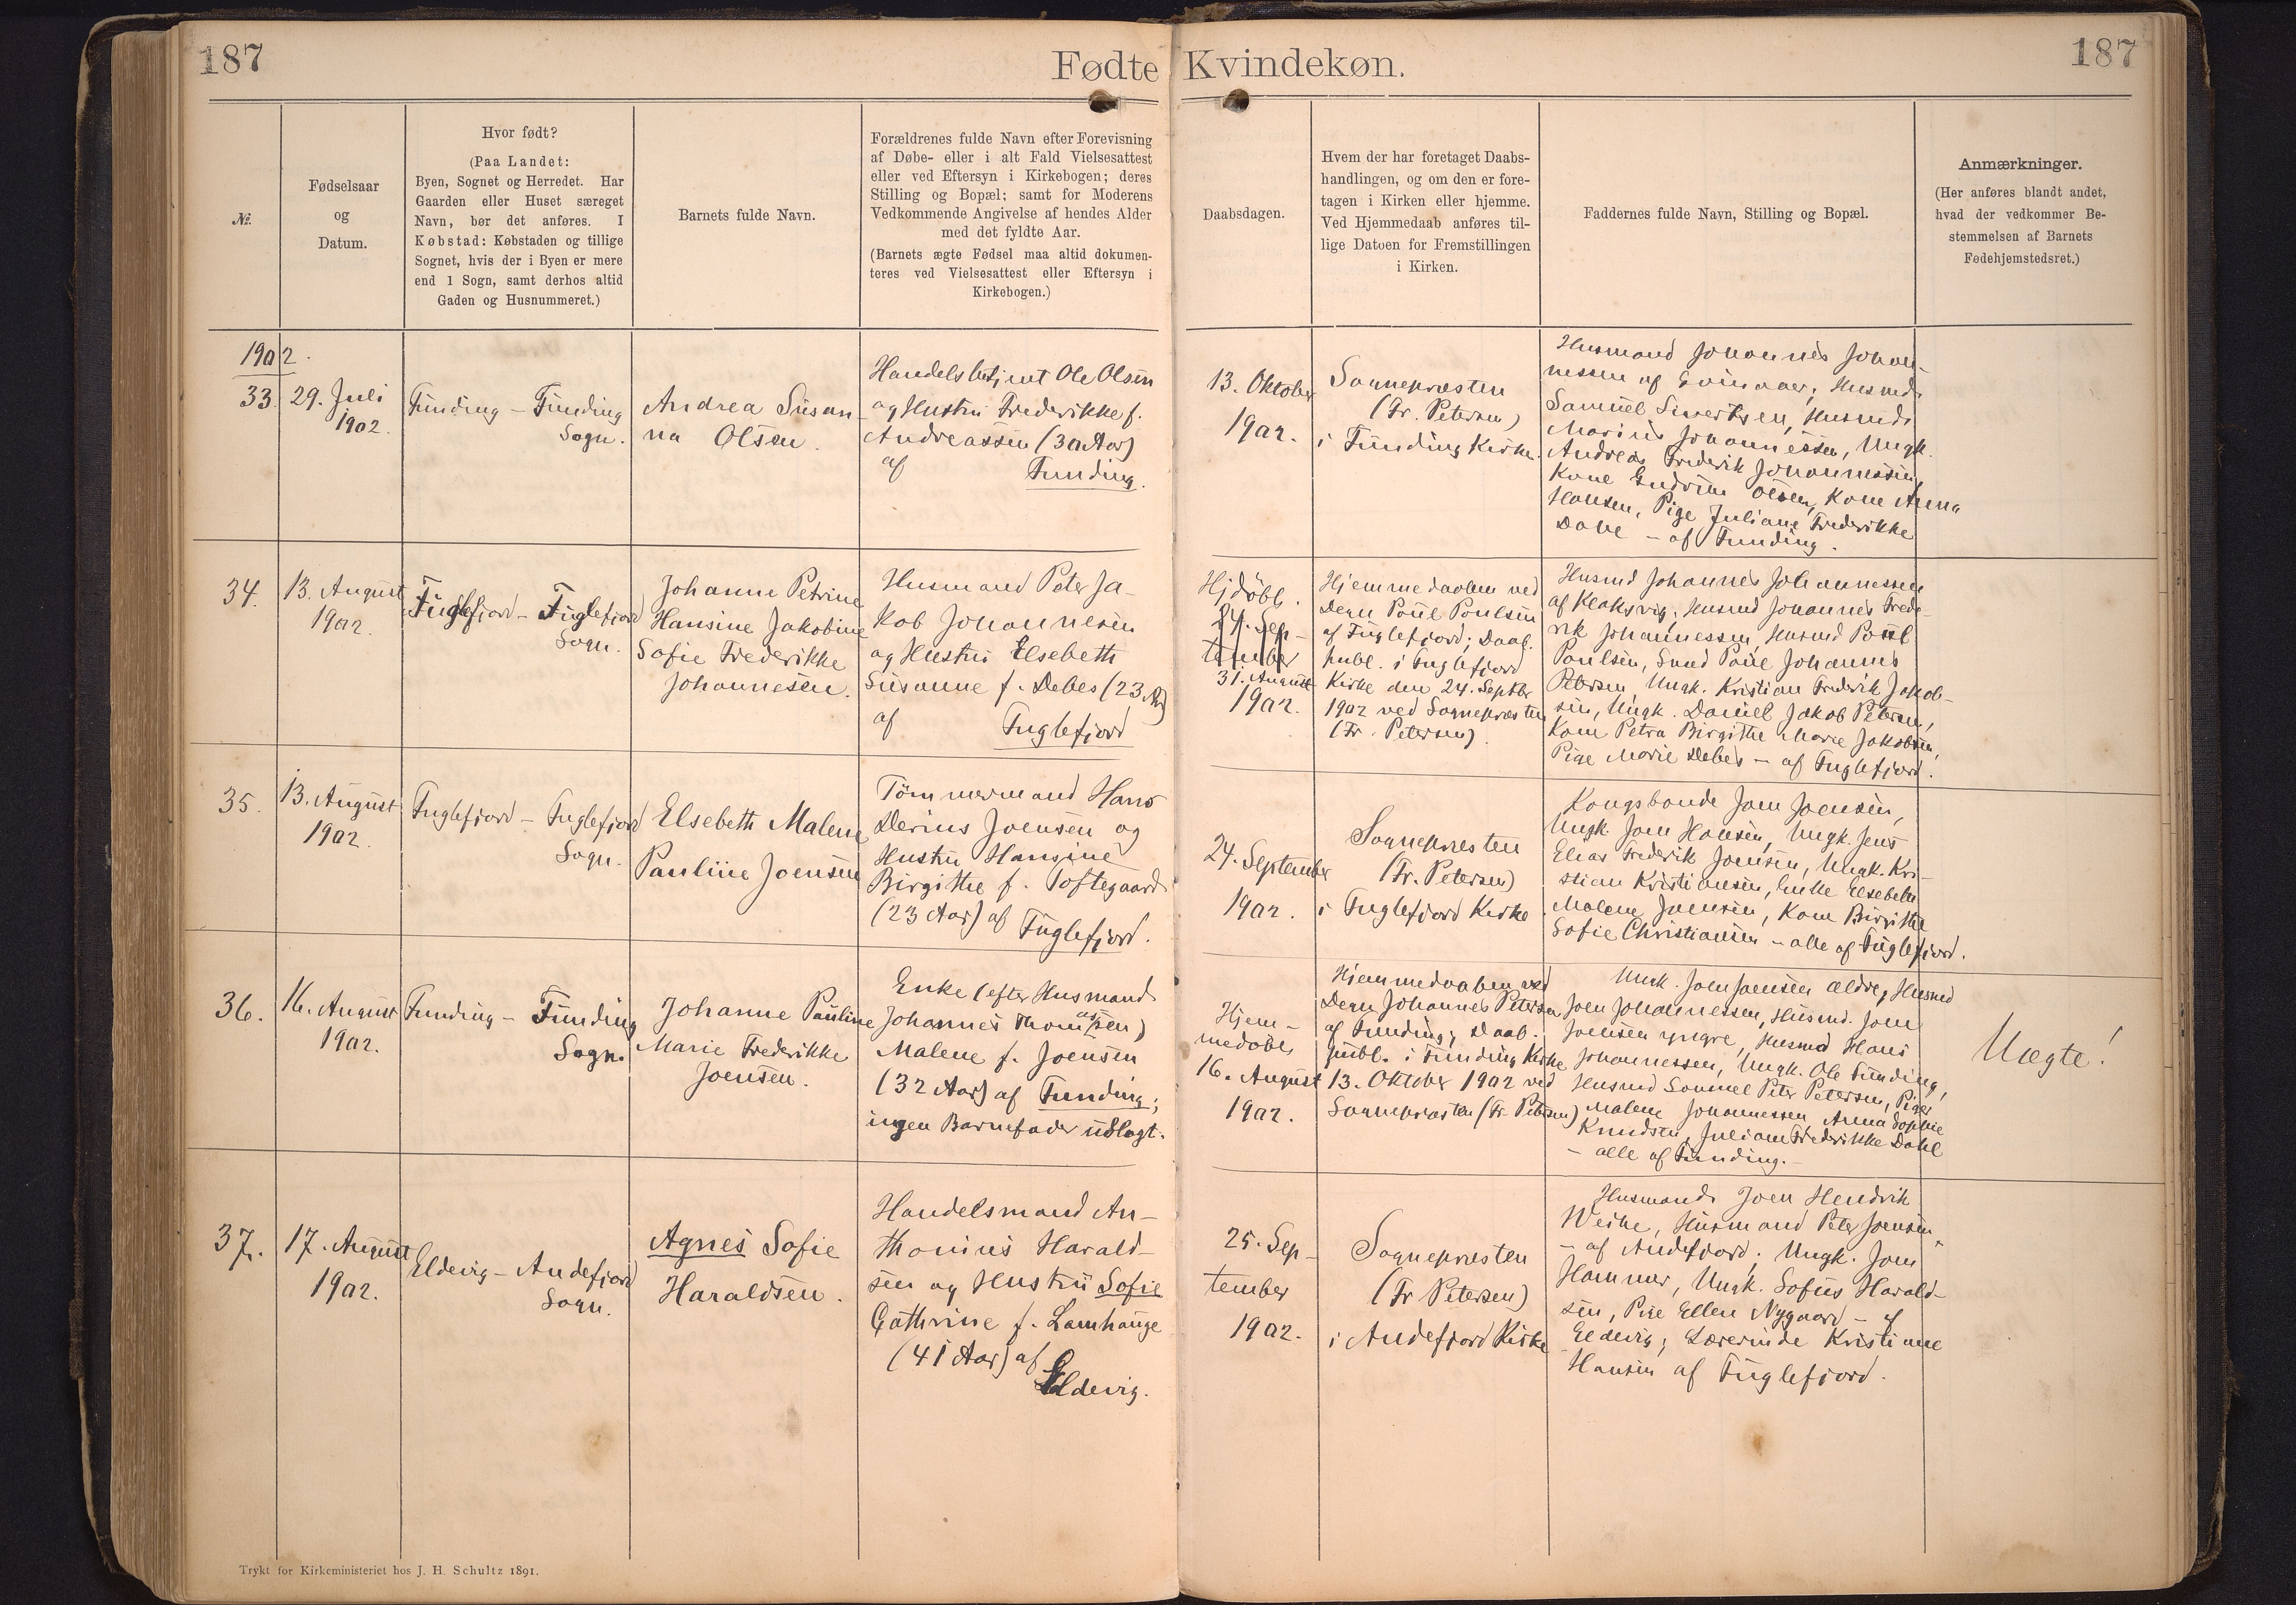 187
Fødte Kvindekøn.
187
№.
Fødselsaar
og
Datum.
Hvor født?
(Paa Landet:
Byen, Sognet og Herredet. Har
Gaarden eller Huset særeget
Navn, bør det anføres. I
Købstad: Købstaden og tillige
Sognet, hvis der i Byen er mere
end 1 Sogn, samt derhos altid
Gaden og Husnummeret.)
Barnets fulde Navn.
Forældrenes fulde Navn efter Forevisning
af Døbe- eller i alt Fald Vielsesattest
eller ved Eftersyn i Kirkebogen; deres
Stilling og Bopæl; samt for Moderens
Vedkommende Angivelse af hendes Alder
med det fyldte Aar.
(Barnets ægte Fødsel maa altid dokumen-
teres ved Vielsesattest eller Eftersyn i
Kirkebogen.)
Daabsdagen.
Hvem der har foretaget Daabs-
handlingen, og om den er fore-
tagen i Kirken eller hjemme.
Ved Hjemmedaab anføres til-
lige Datoen for Fremstillingen
i Kirken.
Faddernes fulde Navn, Stilling og Bopæl.
Anmærkninger.
(Her anføres blandt andet,
hvad der vedkommer Be-
stemmelsen af Barnets
Fødehjemstedsret.)
1902.
33.
29. Juli
1902.
Funding - Funding
Sogn.
Andrea Susan
na Olsen.
Handelsbetjent Ole Olsen
og Hustru Frederikke f.
Andreassen (30 Aar)
af
Funding.
13. Oktober
1902.
Sognepræsten
(Fr. Petersen)
i Funding Kirke.
Husmand Johannes Johan-
nessen af , Husmd.
Samuel Sivertsen, Husmd.
Marius Johannessen, Ungk.
Andreas Frederik Johannessen,
Kone Olsen, Kone Anna
Hansen, Pige Juliane Frederikke
- af Funding.
34.
13. August
1902.
Fuglefjord - Fuglefjord
Sogn.
Johanne Petrine
Hansine Jakobine
Sofie Frederikke
Johannesen.
Husmand Peter Ja-
kob Johannesen
og Hustru Elsebeth
Susanne f. Debes (23 Ar)
af
Fuglefjord
Hjdöbt.
24. Sep-
tember
31. August
1902.
Hjemmedaaben ved
Degn Poul Poulsen
af Fuglefjord; Daab.
publ. i Fuglefjord
Kirke den 24. Septbr
1902 ved Sognepræsten
(Fr. Petersen)
Husmd Johannes Johannessen
af Klaksvig, Husmd Johannes Frede-
rik Johannessen, Husmd Poul
Poulsen, Svend Poul Johannes
Petersen, Ungk. Kristian Frederik Jakob-
sen, Ungk. Daniel Jakob Petersen,
Kone Petra Birgithe Marie Jakobsen,
Pige Marie Debes - af Fuglefjord.
35.
13. August
1902.
Fuglefjord - Fuglefjord
Sogn.
Elsebeth Malene
Pauline Joensen
Tömmermand Hans
Derius Joensen og
Hustru Hansine
Birgithe f. Toftegaard
(23 Aar) af Fuglefjord.
24. September
1902.
Sognepræsten
(Fr. Petersen)
i Fuglefjord Kirke.
Kongsbonde Joen Joensen,
Ungk. Joen Hansen, Ungk. Jens
Elias Frederik Joensen, Ungk. Kri-
stian Kristiansen, Enke Elsebeth
Malene Joensen, Kone Birgithe
Sofie Christiansen - alle af Fuglefjord.
36.
16. August
1902.
Funding - Funding
Sogn.
Johanne Pauline
Marie Frederikke
Joensen.
Enke (efter Husmand
Johannes Thomassen)
Malene f. Joensen
(32 Aar) af Funding;
ingen Barnefader udlagt.
Hjem-
medöbt
16. August
1902.
Hjemmedaaben ved
Degn Johannes Petersen
af Funding; Daab.
publ. i Funding Kirke
13. Oktober 1902 ved
Sognepræsten (Fr. Petersen)
Ungk. Joen Joensen ældre, Husmd
Joen Johannessen, Husmd. Joen
Joensen yngre, Husmd Hans
Johannessen, Ungk. Ole Funding,
Husmd Sammel Peter Petersen, Piger
Malene Johannessen, Anna Sophie
Knudsen, Juliane Frederikke Dahl
- alle af Funding.-
Uægte!
37.
17. August
1902.
Eldevig - Andefjord
Sogn.
Agnes Sofie
Haraldsen.
Handelsmand An-
thonius Harald-
sen og Hustru Sofie
Cathrine f. Lamhauge
(41 Aar) af
Eldevig.
25. Sep-
tember
1902.
Sognepræsten
(Fr Petersen)
i Andefjord Kirke
Husmand Joen Hendrik
Weihe, Husmand Peter Joensen,
- af Andefjord; Ungk. Joen
Hammer, Ungk. Sofus Harald-
sen, Pige Ellen Nygaard - af
Eldevig; Lærerinde Kristiane
Hansen af Fuglefjord.
Trykt for Kirkeministeriet hos J. H. Schultz 1891.